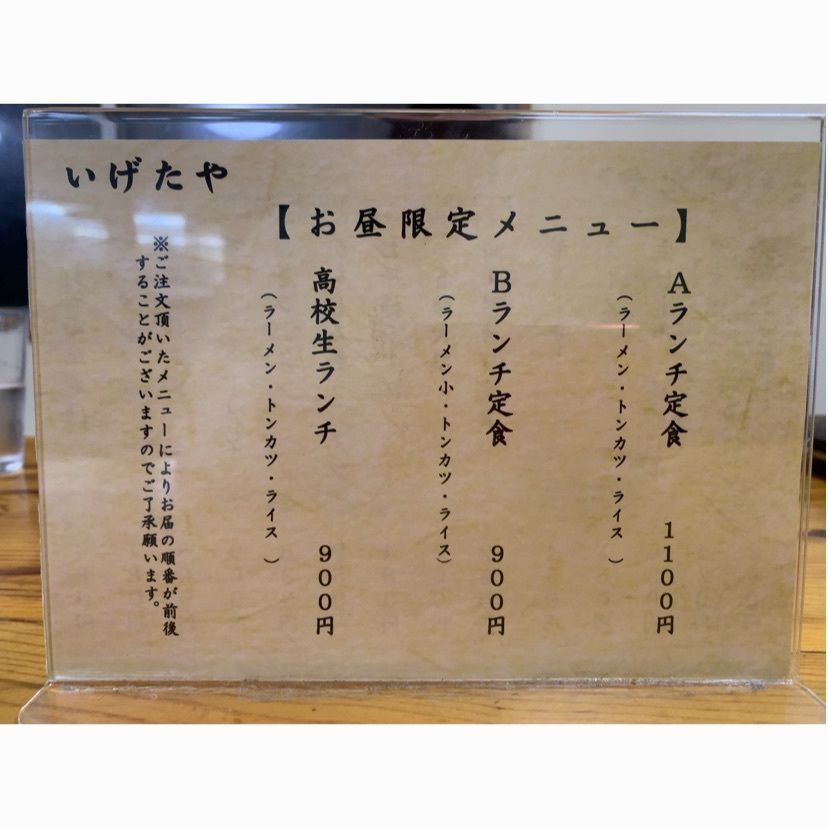 いげたや
【お昼限定メニュー】
Aランチ定食 1100円
(ラーメン・トンカツ・ライス)
Bランチ定食 900円
(ラーメン小・トンカツ・ライス)
高校生ランチ 900円
(ラーメン・トンカツ・ライス)
※ご注文頂いたメニューによりお届の順番が前後
することがございますのでご了承願います。